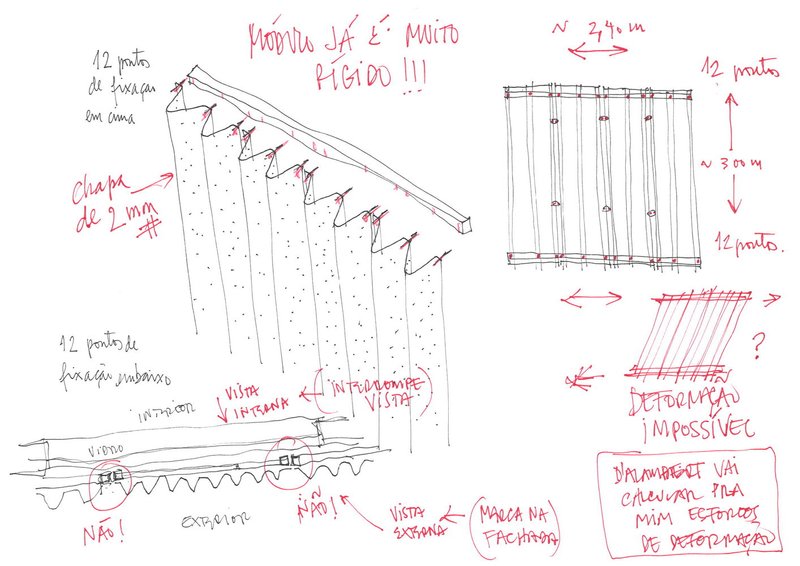 MÓDULO JÁ É MUITO
RÍGIDO!!!
12 pontos
de fixação
em cima
chapa
de 2 mm
~ 2,40 m
12 pontos
~ 3.00 m
12 pontos.
?
DEFORMAÇÃO
IMPOSSÍVEL
12 pontos de
fixação embaixo
INTERIOR
VISTA
INTERNA
(INTERROMPE
VISTA)
VIDRO
NÃO!
EXTERIOR
NÃO!
VISTA
EXTERNA
(MARCA NA
FACHADA)
D'ALAMBERT VAI
CALCULAR PRA
MIM ESFORÇOS
DE DEFORMAÇÃO